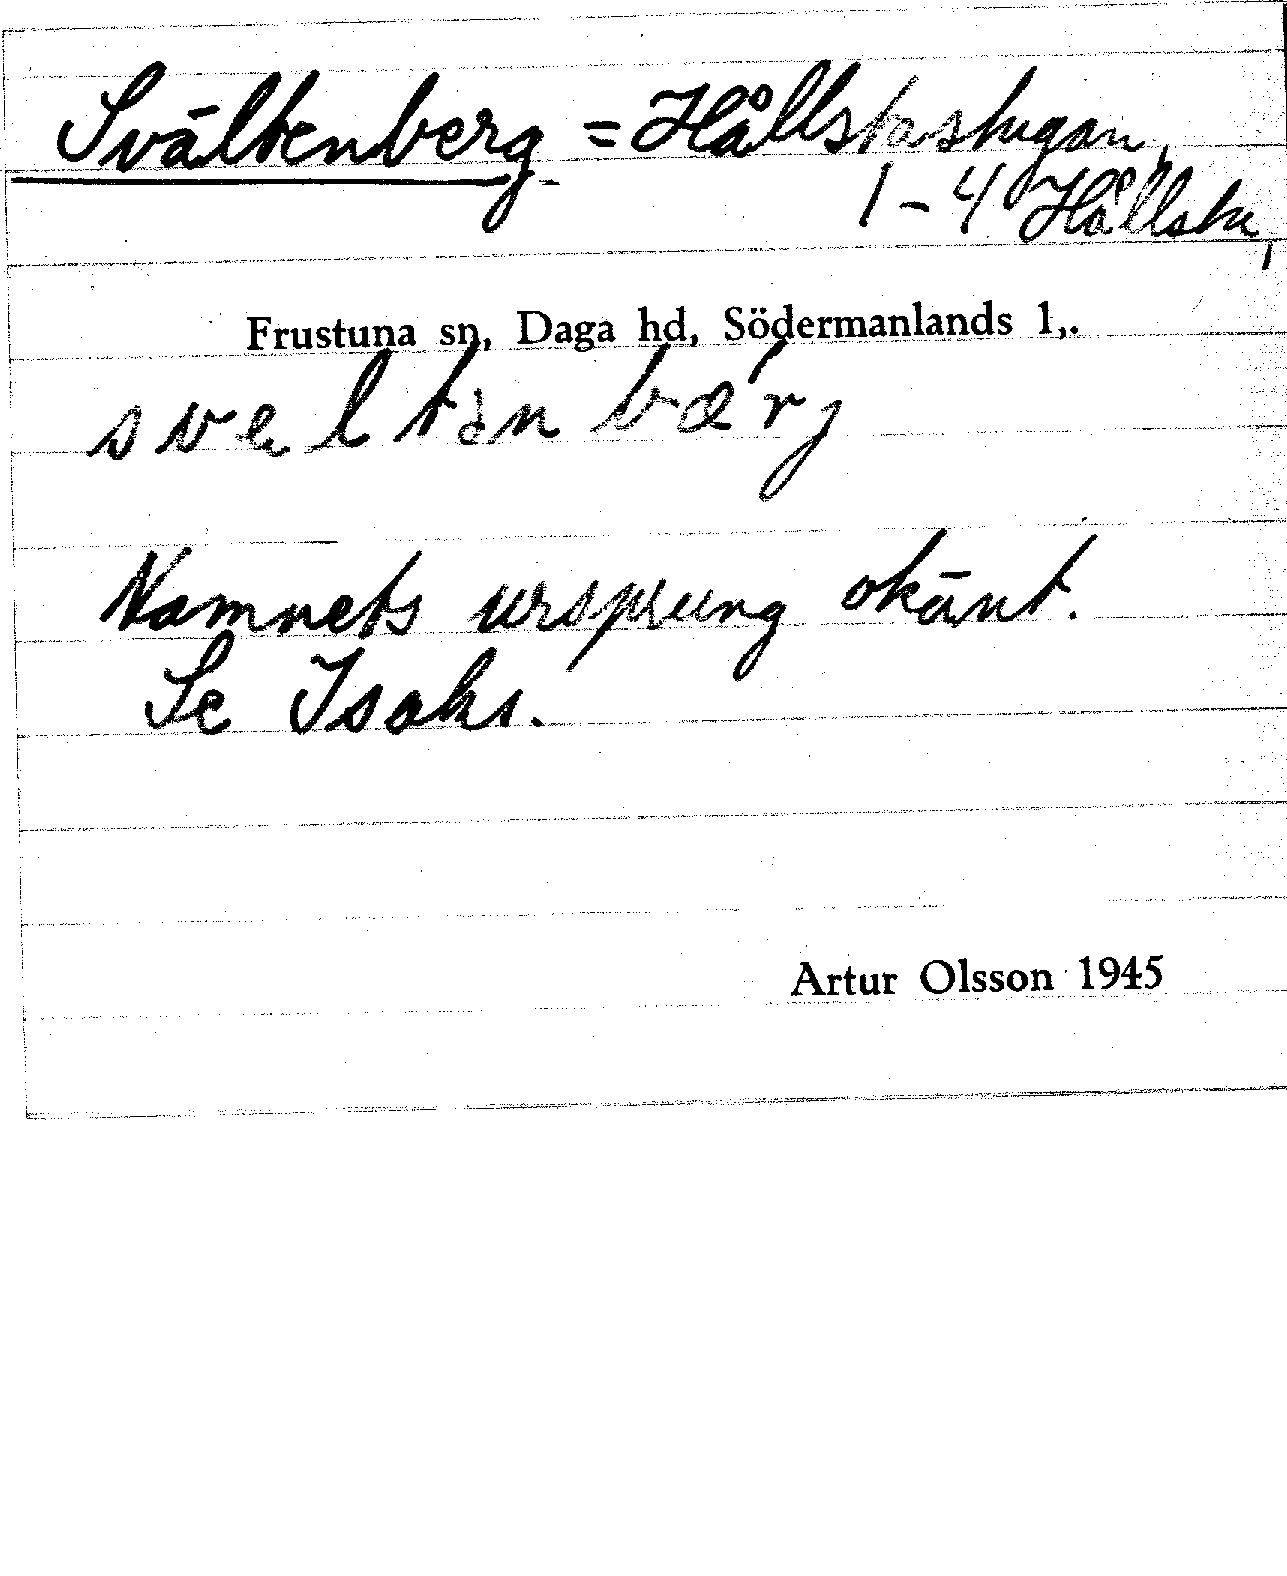 Svältenberg = Hållstastugan,
1-4 Hållsta,
Frustuna sn, Daga hd, Södermanlands l,.
sveltənbærj
Namnets ursprung okänt.
Se Isaks.
Artur Olsson 1945